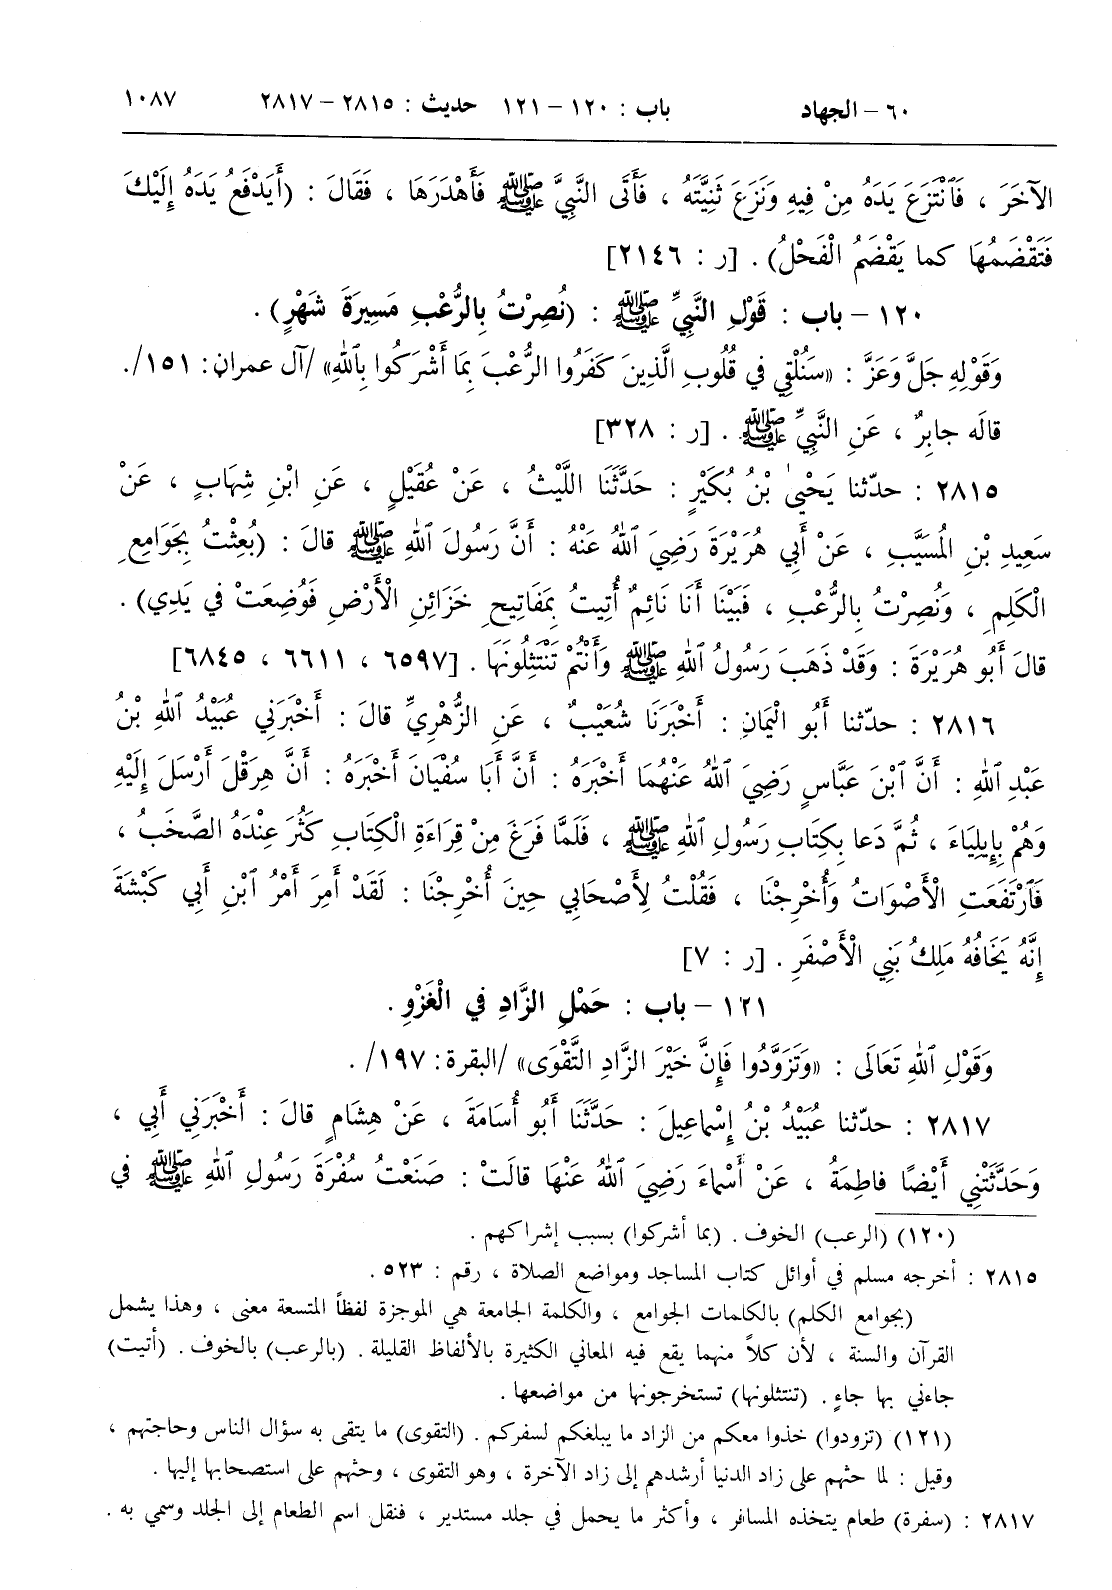 ٦٠ – الجهاد باب : ١٢٠ – ١٢١ حديث : ٢٨١٥ – ٢٨١٧ ١٠٨٧
الآخَرَ ، فَٱنْتَزَعَ يَدَهُ مِنْ فِيهِ وَنَزَعَ ثَنِيَّتَهُ ، فَأَتَى النَّبِيَّ ﷺ فَأَهْدَرَهَا ، فَقَالَ : (أَيَدْفَعُ يَدَهُ إِلَيْكَ
فَتَقْضَمُهَا كما يَقْضَمُ الْفَحْلُ) . [ر : ٢١٤٦]
١٢٠ – باب : قَوْلِ النَّبِيِّ ﷺ : (نُصِرْتُ بِالرُّعْبِ مَسِيرَةَ شَهْرٍ) .
وَقَوْلِهِ جَلَّ وَعَزَّ : «سَنُلْقِي في قُلُوبِ الَّذِينَ كَفَرُوا الرُّعْبَ بِمَا أَشْرَكُوا بِٱللهِ» /آل عمران: ١٥١/.
قالَه جابِرٌ ، عَنِ النَّبِيِّ ﷺ . [ر : ٣٢٨]
٢٨١٥ : حدّثنا يَحْيىٰ بْنُ بُكَيْرٍ : حَدَّثَنَا اللَّيْثُ ، عَنْ عُقَيْلٍ ، عَنِ ابْنِ شِهَابٍ ، عَنْ
سَعِيدِ بْنِ المُسَيَّبِ ، عَنْ أَبِي هُرَيْرَةَ رَضِيَ ٱللهُ عَنْهُ : أَنَّ رَسُولَ ٱللهِ ﷺ قالَ : (بُعِثْتُ بِجَوَامِعِ
الْكَلِمِ ، وَنُصِرْتُ بِالرُّعْبِ ، فَبَيْنَا أَنَا نَائِمٌ أُتِيتُ بِمَفَاتِيحِ خَزَائِنِ الْأَرْضِ فَوُضِعَتْ في يَدِي) .
قالَ أَبُو هُرَيْرَةَ : وَقَدْ ذَهَبَ رَسُولُ ٱللهِ ﷺ وَأَنْتُمْ تَنْتَثِلُونَهَا . [٦٥٩٧ ، ٦٦١١ ، ٦٨٤٥]
٢٨١٦ : حدّثنا أَبُو الْيَمَانِ : أَخْبَرَنَا شُعَيْبٌ ، عَنِ الزُّهْرِيِّ قالَ : أَخْبَرَنِي عُبَيْدُ ٱللهِ بْنُ
عَبْدِ ٱللهِ : أَنَّ ٱبْنَ عَبَّاسٍ رَضِيَ ٱللهُ عَنْهُمَا أَخْبَرَهُ : أَنَّ أَبَا سُفْيَانَ أَخْبَرَهُ : أَنَّ هِرَقْلَ أَرْسَلَ إِلَيْهِ
وَهُمْ بِإِيلِيَاءَ ، ثُمَّ دَعا بِكِتَابِ رَسُولِ ٱللهِ ﷺ ، فَلَمَّا فَرَغَ مِنْ قِرَاءَةِ الْكِتَابِ كَثُرَ عِنْدَهُ الصَّخَبُ ،
فَٱرْتَفَعَتِ الْأَصْوَاتُ وَأُخْرِجْنَا ، فَقُلْتُ لِأَصْحَابِي حِينَ أُخْرِجْنَا : لَقَدْ أَمِرَ أَمْرُ ٱبْنِ أَبِي كَبْشَةَ
إِنَّهُ يَخَافُهُ مَلِكُ بَنِي الْأَصْفَرِ . [ر : ٧]
١٢١ – باب : حَمْلِ الزَّادِ في الْغَزْوِ .
وَقَوْلِ ٱللهِ تَعَالَى : «وَتَزَوَّدُوا فَإِنَّ خَيْرَ الزَّادِ التَّقْوَى» /البقرة: ١٩٧/ .
٢٨١٧ : حدّثنا عُبَيْدُ بْنُ إِسْماعِيلَ : حَدَّثَنَا أَبُو أُسَامَةَ ، عَنْ هِشَامٍ قالَ : أَخْبَرَنِي أَبِي ،
وَحَدَّثَتْنِي أَيْضًا فاطِمَةُ ، عَنْ أَسْماءَ رَضِيَ ٱللهُ عَنْهَا قالَتْ : صَنَعْتُ سُفْرَةَ رَسُولِ ٱللهِ ﷺ في
(١٢٠) (الرعب) الخوف . (بما أشركوا) بسبب إشراكهم .
٢٨١٥ : أخرجه مسلم في أوائل كتاب المساجد ومواضع الصلاة ، رقم : ٥٢٣ .
(بجوامع الكلم) بالكلمات الجوامع ، والكلمة الجامعة هي الموجزة لفظاً المتسعة معنى ، وهذا يشمل
القرآن والسنة ، لأن كلاً منهما يقع فيه المعاني الكثيرة بالألفاظ القليلة . (بالرعب) بالخوف . (أتيت)
جاءني بها جاءٍ . (تنتثلونها) تستخرجونها من مواضعها .
(١٢١) (تزودوا) خذوا معكم من الزاد ما يبلغكم لسفركم . (التقوى) ما يتقى به سؤال الناس وحاجتهم ،
وقيل : لما حثهم على زاد الدنيا أرشدهم إلى زاد الآخرة ، وهو التقوى ، وحثهم على استصحابها إليها .
٢٨١٧ : (سفرة) طعام يتخذه المسافر ، وأكثر ما يحمل في جلد مستدير ، فنقل اسم الطعام إلى الجلد وسمي به .